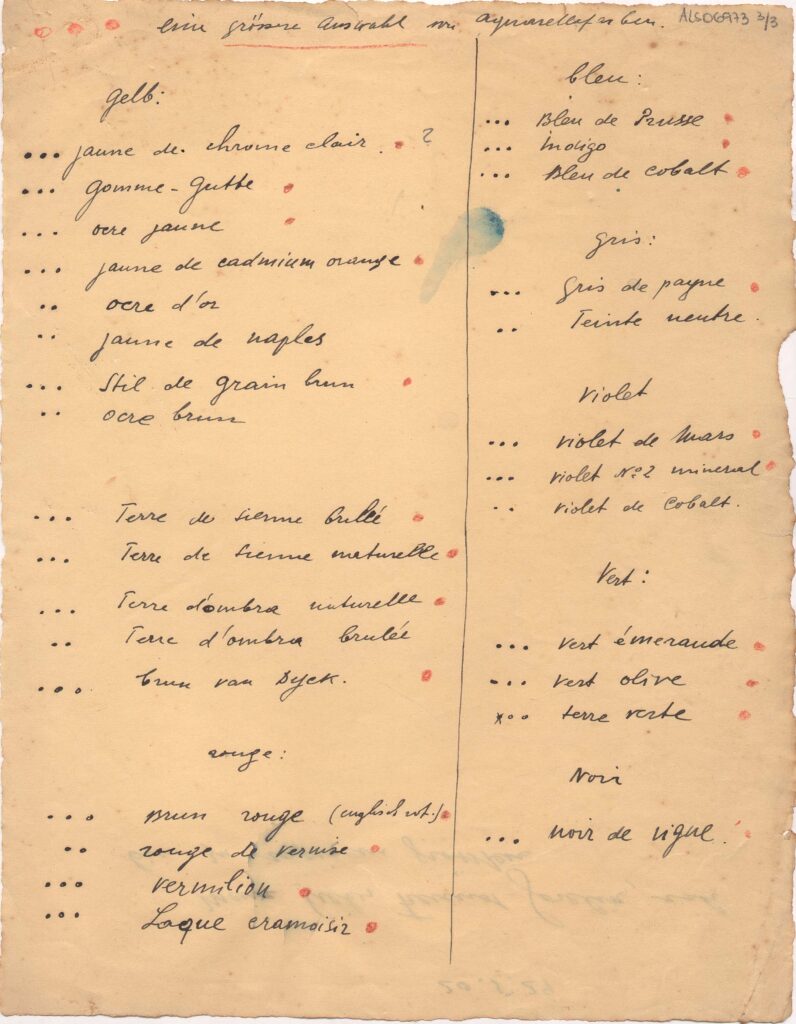 eine grössere Auswahl von Aquarellfarben.
ALS06973 3/3
gelb:
... jaune de chrome clair . ?
... gomme-gutte
... ocre jaune
... jaune de cadmium orange
.. ocre d'or
.. jaune de naples
... Stil de grain brun
.. ocre brun
... Terre de sienne brulée
... Terre de sienne naturelle
... Terre d'ombra naturelle
.. Terre d'ombra brulée
... brun van Dyck.
rouge:
... Brun rouge (englisch rot.)
.. rouge de venise
... vermilion
... Laque cramoisir
bleu:
... Bleu de Prusse
... indigo
... Bleu de cobalt
gris:
... gris de payne
.. Teinte neutre.
violet
... violet de Mars
... violet No 2 mineral
.. violet de Cobalt.
Vert:
... vert émeraude
... vert olive
... terre verte
Noir
... noir de vigne.